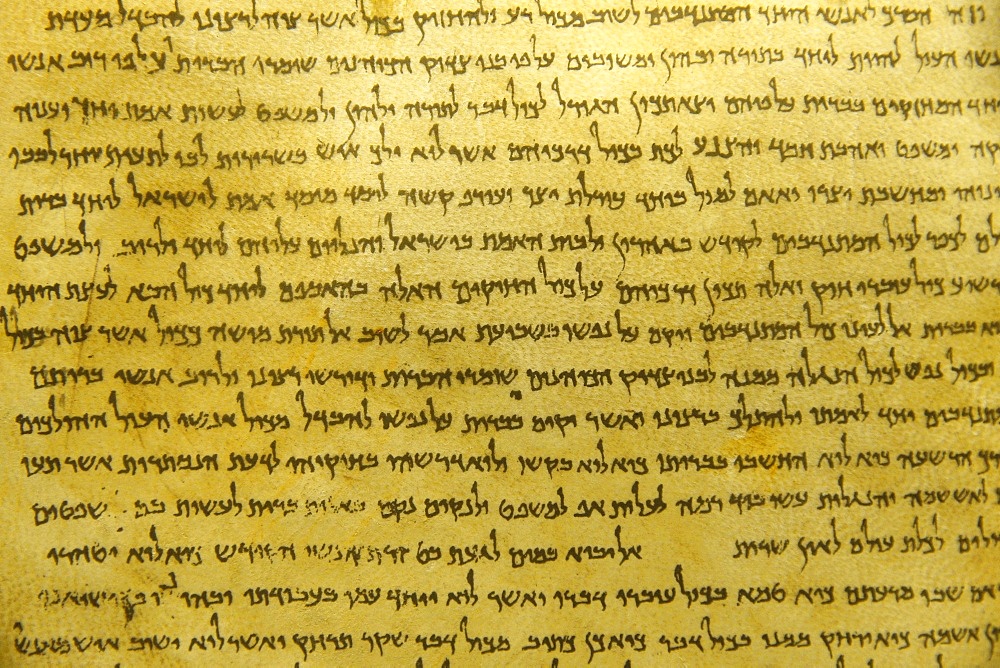 וזה הסרכ לאנשי היחד המתנדבים לשוב מכול רע ולהחזיק בכול אשר צוה לרצונו להבדל מעדת
העול להיות ליחד בתורה ובהון ומשיבים על פי בני צדוק הכוהנים שומרי הברית ועל פי רוב אנשי
המחזקים בברית על פיהם יצא תכון הגורל לכול דבר לתורה ולהון ולמשפט לעשות אמת יחד וענוה
ומשפט ואהבת חסד והצנע לכת בכול דרכיהם אשר לוא ילכ איש בשרירות לבו לתעות אחר לבבו
ומחשבת יצרו ואאם למול ביחד עורלת יצר ועורפ קשה ליסד מוסד אמת לישראל ליחד ברית
לכפר לכול המתנדבים לקודש באהרון ולבית האמת בישראל והנלוים עליהם ליחד ולריב ולמשפט
כול עוברי חוק ואלה תכון דרכיהם על כול החוקים האלה בהאספם ליחד כול הבא לעצת היחד
בברית אל לעיני כול המתנדבים ויקם על נפשו בשבועת אסר לשוב אל תורת מושה ככול אשר צוה בכול
ובכול נפש לכול הנגלה ממנה לבני צדוק הכוהנים שומרי הברית ודורשי רצונו ולרוב אנשי בריתם
יחד לאמתו ולהתלכ ברצונו ואשר יקים בברית על נפשו להבדל מכול אנשי העול ההולכים
הרשעה כיא לוא החשבו בבריתו כיא לוא בקשו ולוא דרשהו בחוקוהי לדעת הנסתרות אשר תעו
לאשמה והנגלות עשו ביד רמה לעלות אפ למשפט ולנקום נקם באלות ברית לעשות בם שפטים
לכלת עולם לאין שרית אל יבוא במים לגעת בטהרת אנשי הקודש כיא לוא יטהרו
אם שבו מרעתם כיא טמא בכול עוברי דברו ואשר לוא ייחד עמו בעבודתו
אשמה כיא ירחק ממנו בכול דבר כיא כן כתוב מכול דבר שקר תרחק ואשר לוא ישוב איש מאנשי